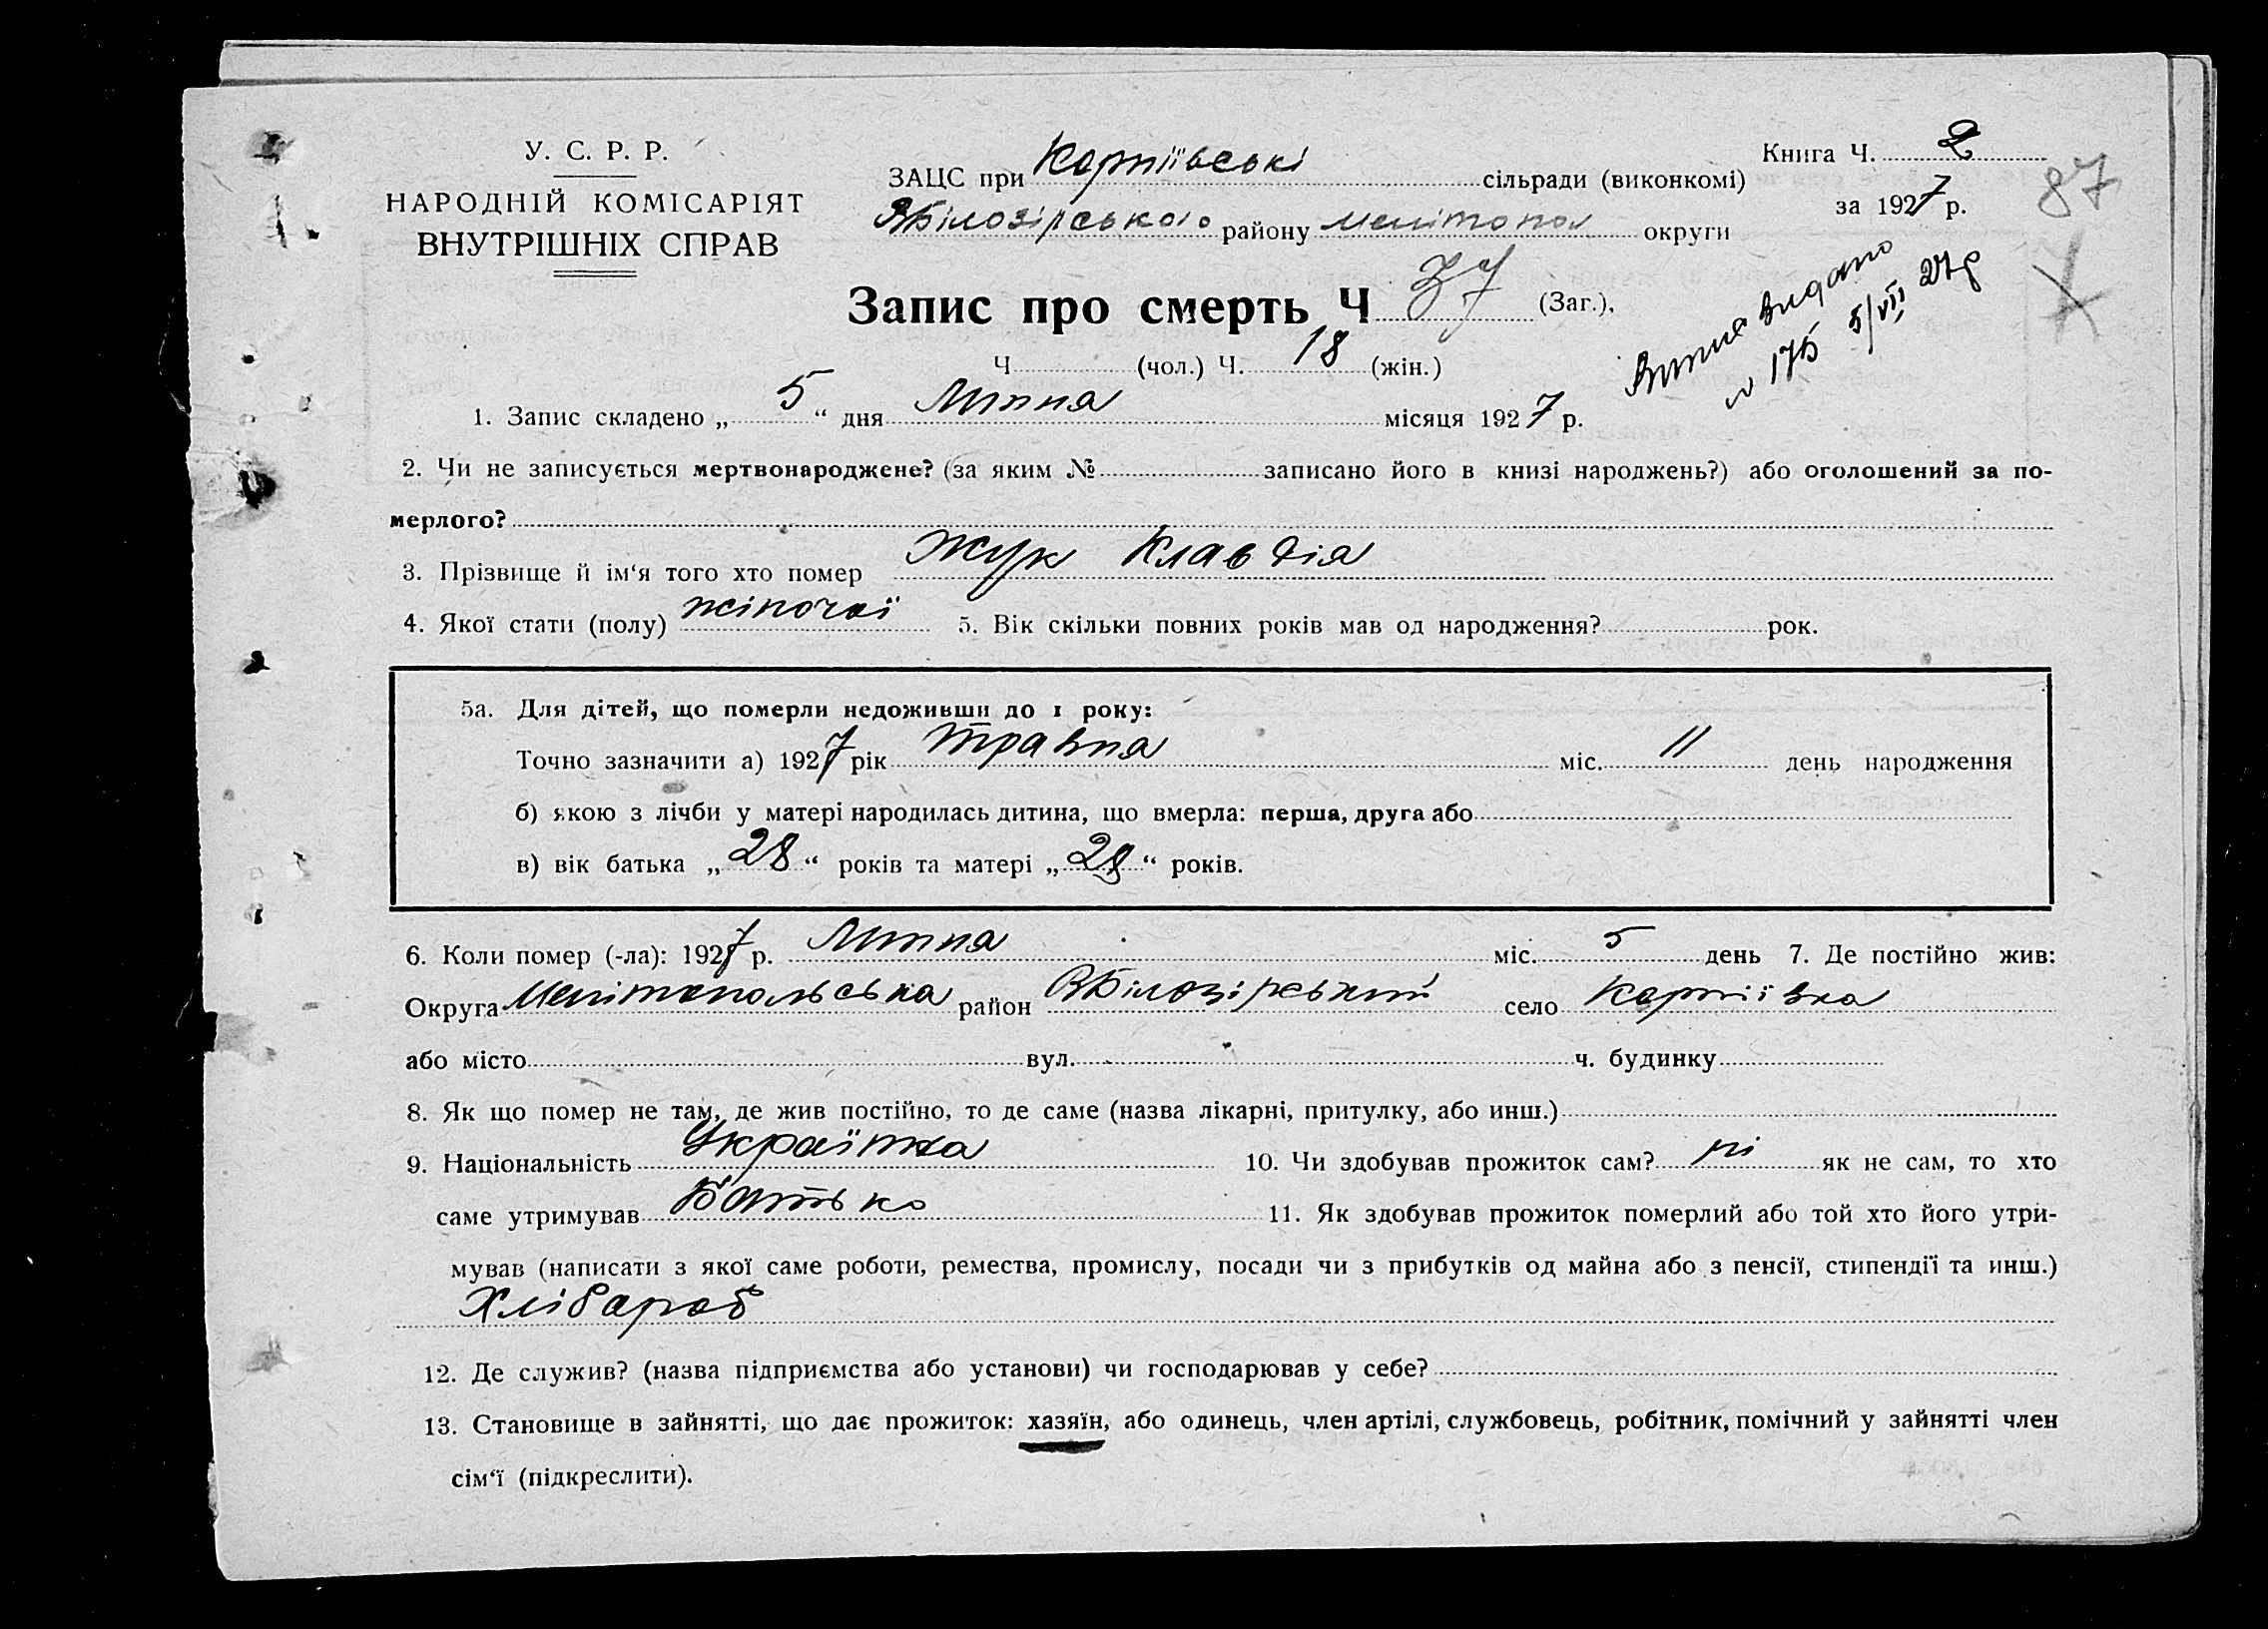 У. С. Р. Р.
НАРОДНІЙ КОМІСАРІЯТ
ВНУТРІШНІХ СПРАВ
ЗАЦС при Корніївські сільради (виконкомі)
ВБілозірського району Мелітопол округи
Книга Ч. 2
за 1927 р.
87
Запис про смерть Ч 37 (Заг.),
Ч (чол.) Ч. 18 (жін.)
видано
№ 175 5/VII 27р
1. Запис складено „ 5 “ дня Липня місяця 1927 р.
2. Чи не записується мертвонароджене? (за яким № записано його в книзі народжень?) або оголошений за по-
мерлого?
3. Прізвище й ім‘я того хто помер Жук Клавдія
4. Якої стати (полу) жіночої 5. Вік скільки повних років мав од народження? рок.
5а. Для дітей, що померли недоживши до 1 року:
Точно зазначити а) 1927 рік травня міс. 11 день народження
б) якою з лічби у матері народилась дитина, що вмерла: перша, друга або
в) вік батька „ 28 “ років та матері „ 28 “ років.
6. Коли помер (-ла): 1927 р. Липня міс. 5 день 7. Де постійно жив:
Округа Мелітопольська район ВБілозірський село Корніївка
або місто вул. ч. будинку
8. Як що помер не там, де жив постійно, то де саме (назва лікарні, притулку, або инш.)
9. Національність Українка 10. Чи здобував прожиток сам? ні як не сам, то хто
саме утримував Батько 11. Як здобував прожиток померлий або той хто його утри-
мував (написати з якої саме роботи, ремества, промислу, посади чи з прибутків од майна або з пенсії, стипендії та инш.)
Хлібароб
12. Де служив? (назва підприємства або установи) чи господарював у себе?
13. Становище в зайнятті, що дає прожиток: хазяїн, або одинець, член артілі, службовець, робітник, помічний у зайнятті член
сім‘ї (підкреслити).